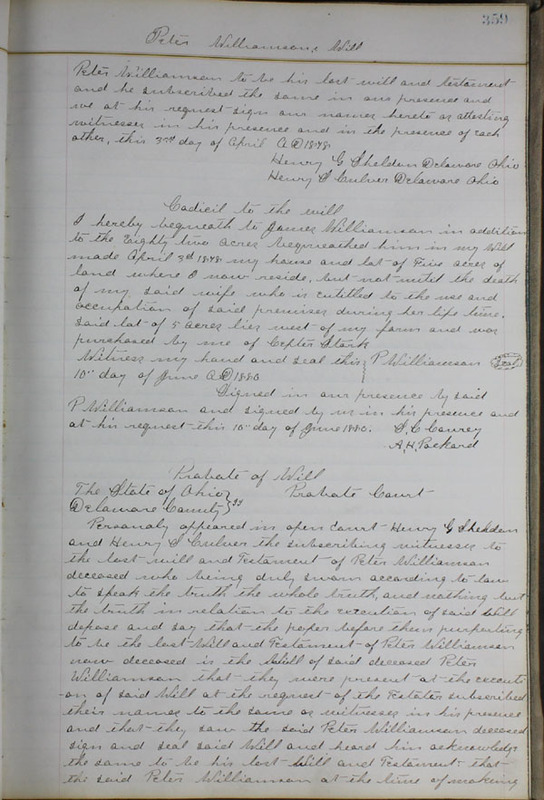 359
Peter Williamsons Will
Peter Williamson to be his last will and testament
and he subscribed the same in our presence and
we at his request sign our names hereto as attesting
witnesses in his presence and in the presence of each
other, this 3rd day of April A.D 1878.
Henry G Sheldon Delaware Ohio
Henry S Culver Delaware Ohio
Codicil to the will
I hereby bequeath to James Williamson in addition
to the Eighty two acres bequeathed him in my Will
made April 3d 1878 my house and lot of Five acres of
land where I now reside, but not until the death
of my said wife who is entitled to the use and
occupation of said premises during her life time.
Said lot of 5 acres lies west of my farm and was
purchased by me of Stark
Witness my hand and seal this } P Williamson (Seal)
10" day of June A.D 1880
Signed in our presence by said
P Williamson and signed by us in his presence and
at his request this 10" day of June 1880. S. C. Conrey
A. H. Packard
Probate of Will
The State of Ohio } ss Probate Court
Delaware County
Personaly appeared in open court Henry G Sheldon
and Henry S Culver the subscribing witnesses to
the last will and Testament of Peter Williamson
deceased who being duly sworn according to law
to speak the truth the whole truth, and nothing but
the truth in relation to the execution of said Will
depose and say that the paper before them purporting
to be the last Will and Testament of Peter Williamson
now deceased is the Will of said deceased Peter
Williamson that they were present at the executi
on of said Will at the request of the Testator subscribed
their names to the same as witnesses in his presence
and that they saw the said Peter Williamson deceased
sign and seal said Will and heard him acknowledge
the same to be his last Will and Testament that
the said Peter Williamson at the time of making